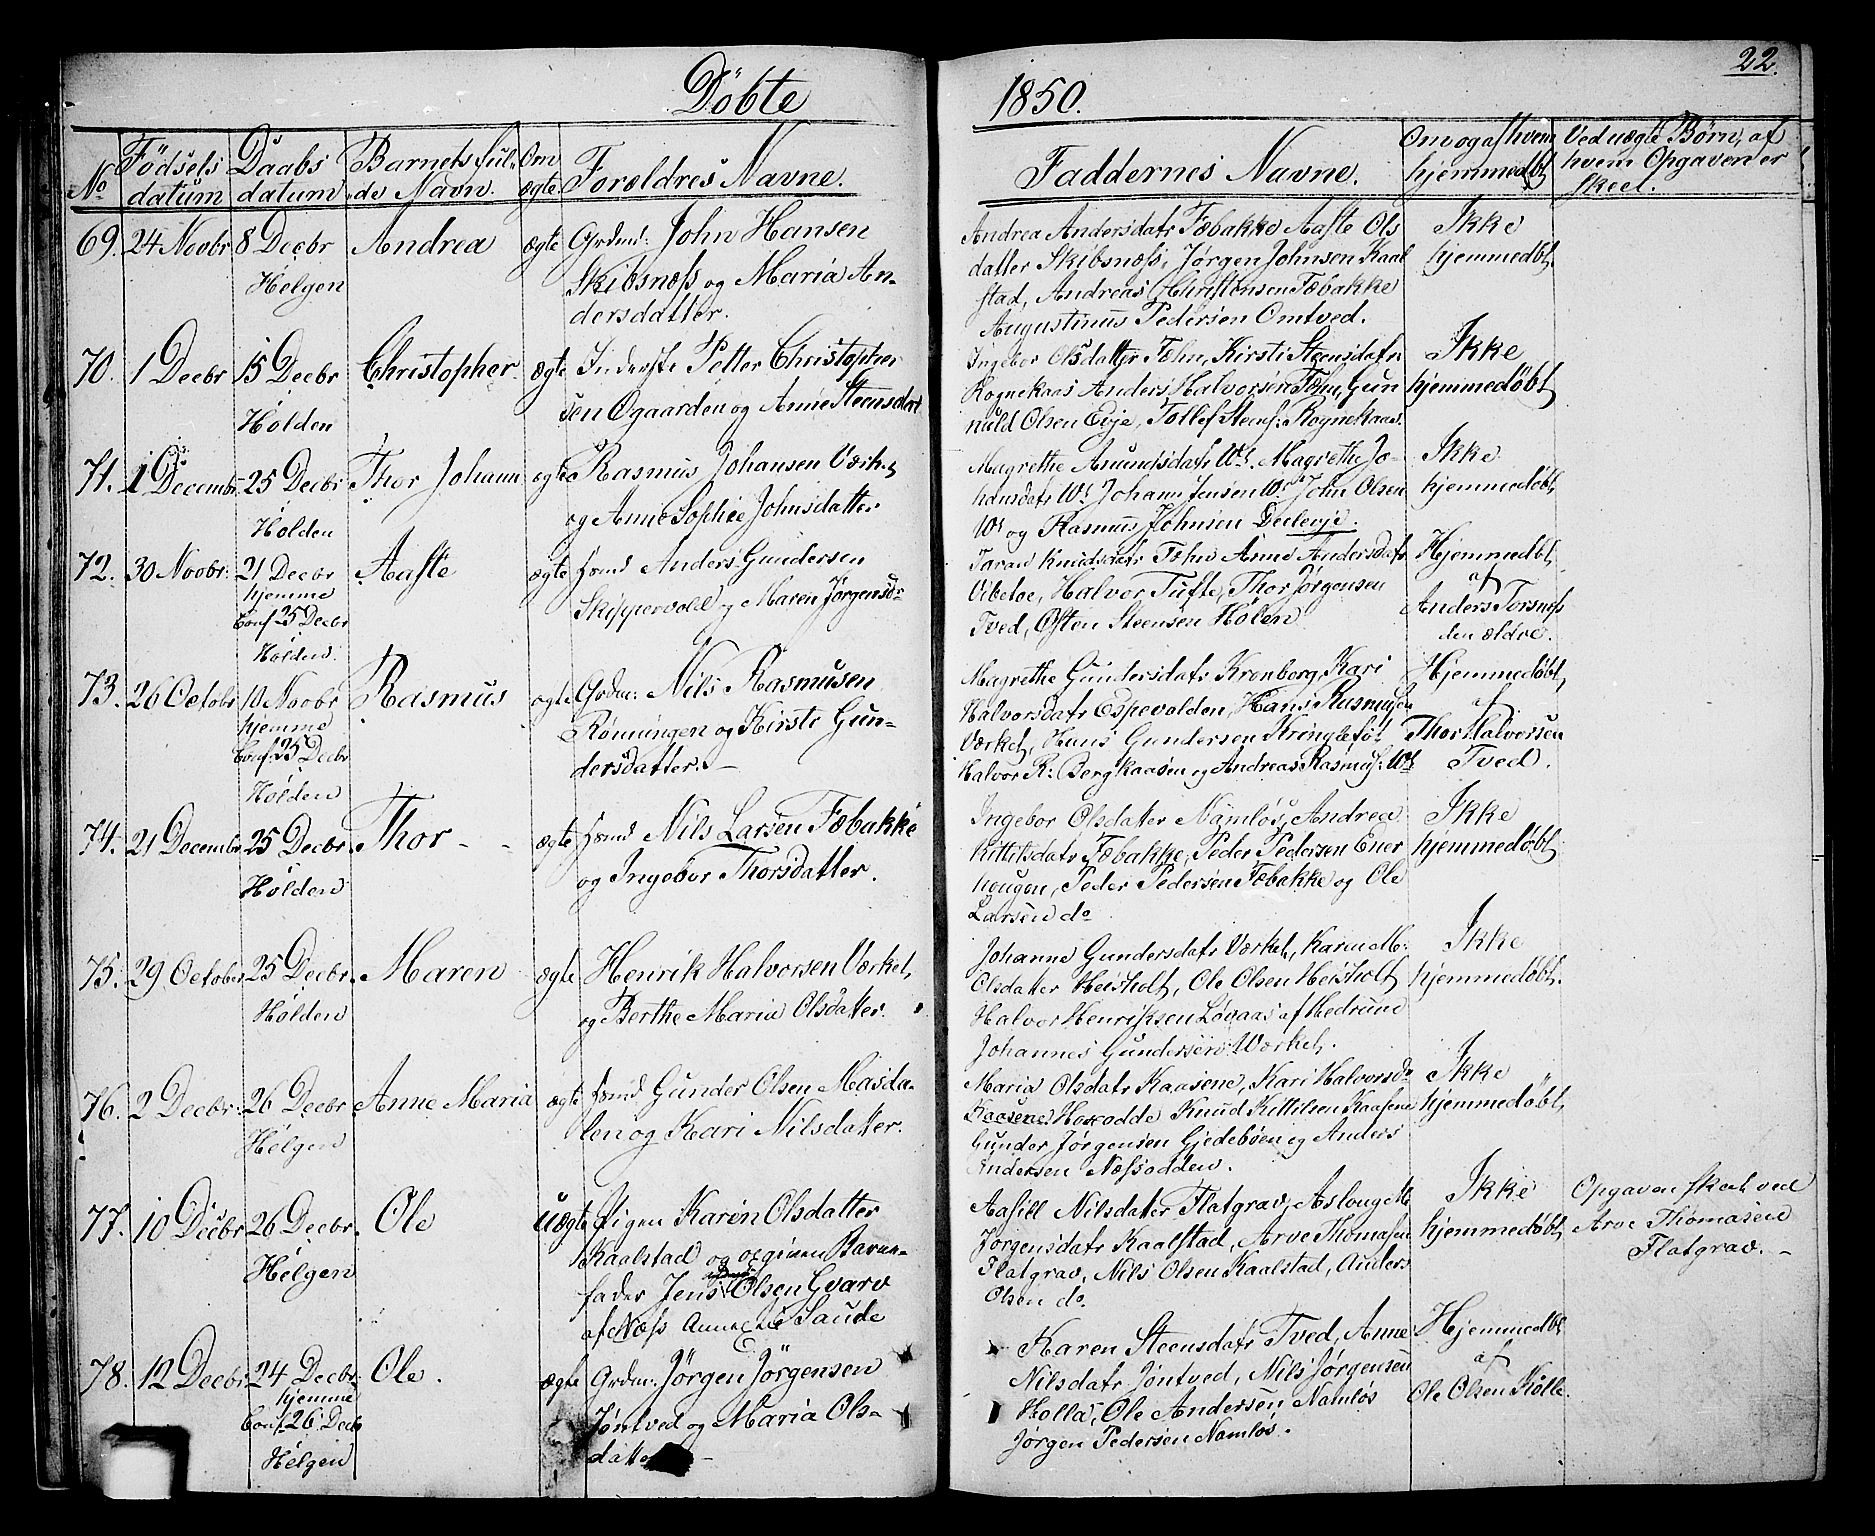 22.
Döbte 1850.
No Födsels datum Daabs datum Barnets fulde Navn. Om ægte Forældres Navne. Faddernes Navne. Om og af hvem hjemmedöbt Ved uægte Børn, af hvem Opgaven er skeet.
69. 24 Novbr 8 Decbr Andrea ægte Grdmd: John Hansen
Helgen Skibsnæss og Maria An-
dersdatter.
Andrea Andersdatr Fæbakke Aaste Ols
datter Skibsnæss, Jørgen Johnsen Kaal
stad, Andreas Christensen Fæbakke
Augustinus Pedersen Omtved.
Ikke
hjemmedøbt.
70. 1 Decbr 15 Decbr Christopher ægte Inderste Petter Christopher
Holden sen Øgaarden og Anne Steensdatr
Ingebor Olsdatter Fæhn, Kirsti Steensdatr
Rognekaas Anders Halvorsen Fæhn, Gun
nuld Olsen Evje, Tollef Steens: Rognekaas.
Ikke
hjemmedøbt
71. 1 Decembr 25 Decbr Thor Johan ægte Rasmus Johansen Værket
Holden og Anne Sophie Johnsdatter
Magrethe Amundsdatr Wt. Magrethe Jo-
hansdatr Wt Johan Jensen Wt John Olsen
Wt og Rasmus Johnsen
Ikke
hjemmedøbt
72. 30 Novbr: 21 Decbr Aaste ægte Hsmd Anders Gundersen
hjemme
Conf. 25 Decbr
Holden.
Skippervold og Maren Jørgensdr
Taran Knudsdatr Fæhn Anne Andersdatr
Vibetoe, Halvor Tufte, Thor Jørgensen
Tved, Østen Steensen Holen
Hjemmedøbt
af
Anders Torsnæss
den ældre.
73. 26 Octobr 10 Novbr Rasmus ægte Grdm: Nils Rasmusen
hjemme
Conf. 25 Decbr
Holden
Rønningen og Kirsti Gun-
dersdatter. -
Magrethe Gundersdatr Kronborg, Kari
Halvorsdatr Espevolden, Hans Rasmusen
Værket, Hans Gundersen Kringlefot
Halvor R: Bergkaasen og Andreas Rasmus: Wt
Hjemmedøbt,
af
Thor Halvorsen
Tved.
74. 21 Decembr 25 Decbr Thor - - ægte Hsmd Nils Larsen Fæbakke
Holden og Ingebor Thorsdatter.
Ingebor Olsdatter Namløs, Andrea
Kittilsdatr Fæbakke, Peder Pedersen Ener
hougen, Peder Pedersen Fæbakke og Ole
Larsen do
Ikke
hjemmedøbt
75. 29 October 25 Decbr. Maren ægte Henrik Halvorsen Værket,
Holden og Berthe Maria Olsdatter.
Johanne Gundersdatr Værket, Karen M:
Olsdatter Heisholt, Ole Olsen Heisholt
Halvor Henriksen Løvaas af Hedrum
Johannes Gundersen Værket.
Ikke
hjemmedøbt.
76. 2 Decbr: 26 Decbr Anne Maria ægte Hsmd. Gunder Olsen Masda-
Helgen len og Kari Nilsdatter.
Maria Olsdatr Kaasene, Kari Halvorsdr
Kaasene Hoxodde Knud Kittilsen Kaasene
Gunder Jørgensen Gjedebøen og Anders
Andersen Næssodden.
Ikke
hjemmedøbt
77. 10 Decbr 26 Decbr. Ole uægte Pigen Karen Olsdatter
Helgen Kaalstad og opgiven Barne-
fader Jens Olsen Gvarv
af Næss Annex til Saude
Aasill Nilsdatter Flatgrav, Aslouge M:
Jørgensdatr Kaalstad, Arve Thomasen
Flatgrav, Nils Olsen Kaalstad, Anders
Olsen do.
Ikke
hjemmedøbt
Opgaven skeet ved
Arve Thomasen
Flatgrav. -
78. 12 Decbr 24 Decbr. Ole. ægte Grdm: Jørgen Jørgensen
hjemme
Conf. 26 Decbr
Helgen
Jøntved og Maria Ols-
datter -
Karen Steensdatr Tved, Anne
Nilsdatr Jøntved, Nils Jørgensen
Holla, Ole Andersen Namløs
Jørgen Pedersen Namløs.
Hjemmedøbt
af
Ole Olsen Kolle.